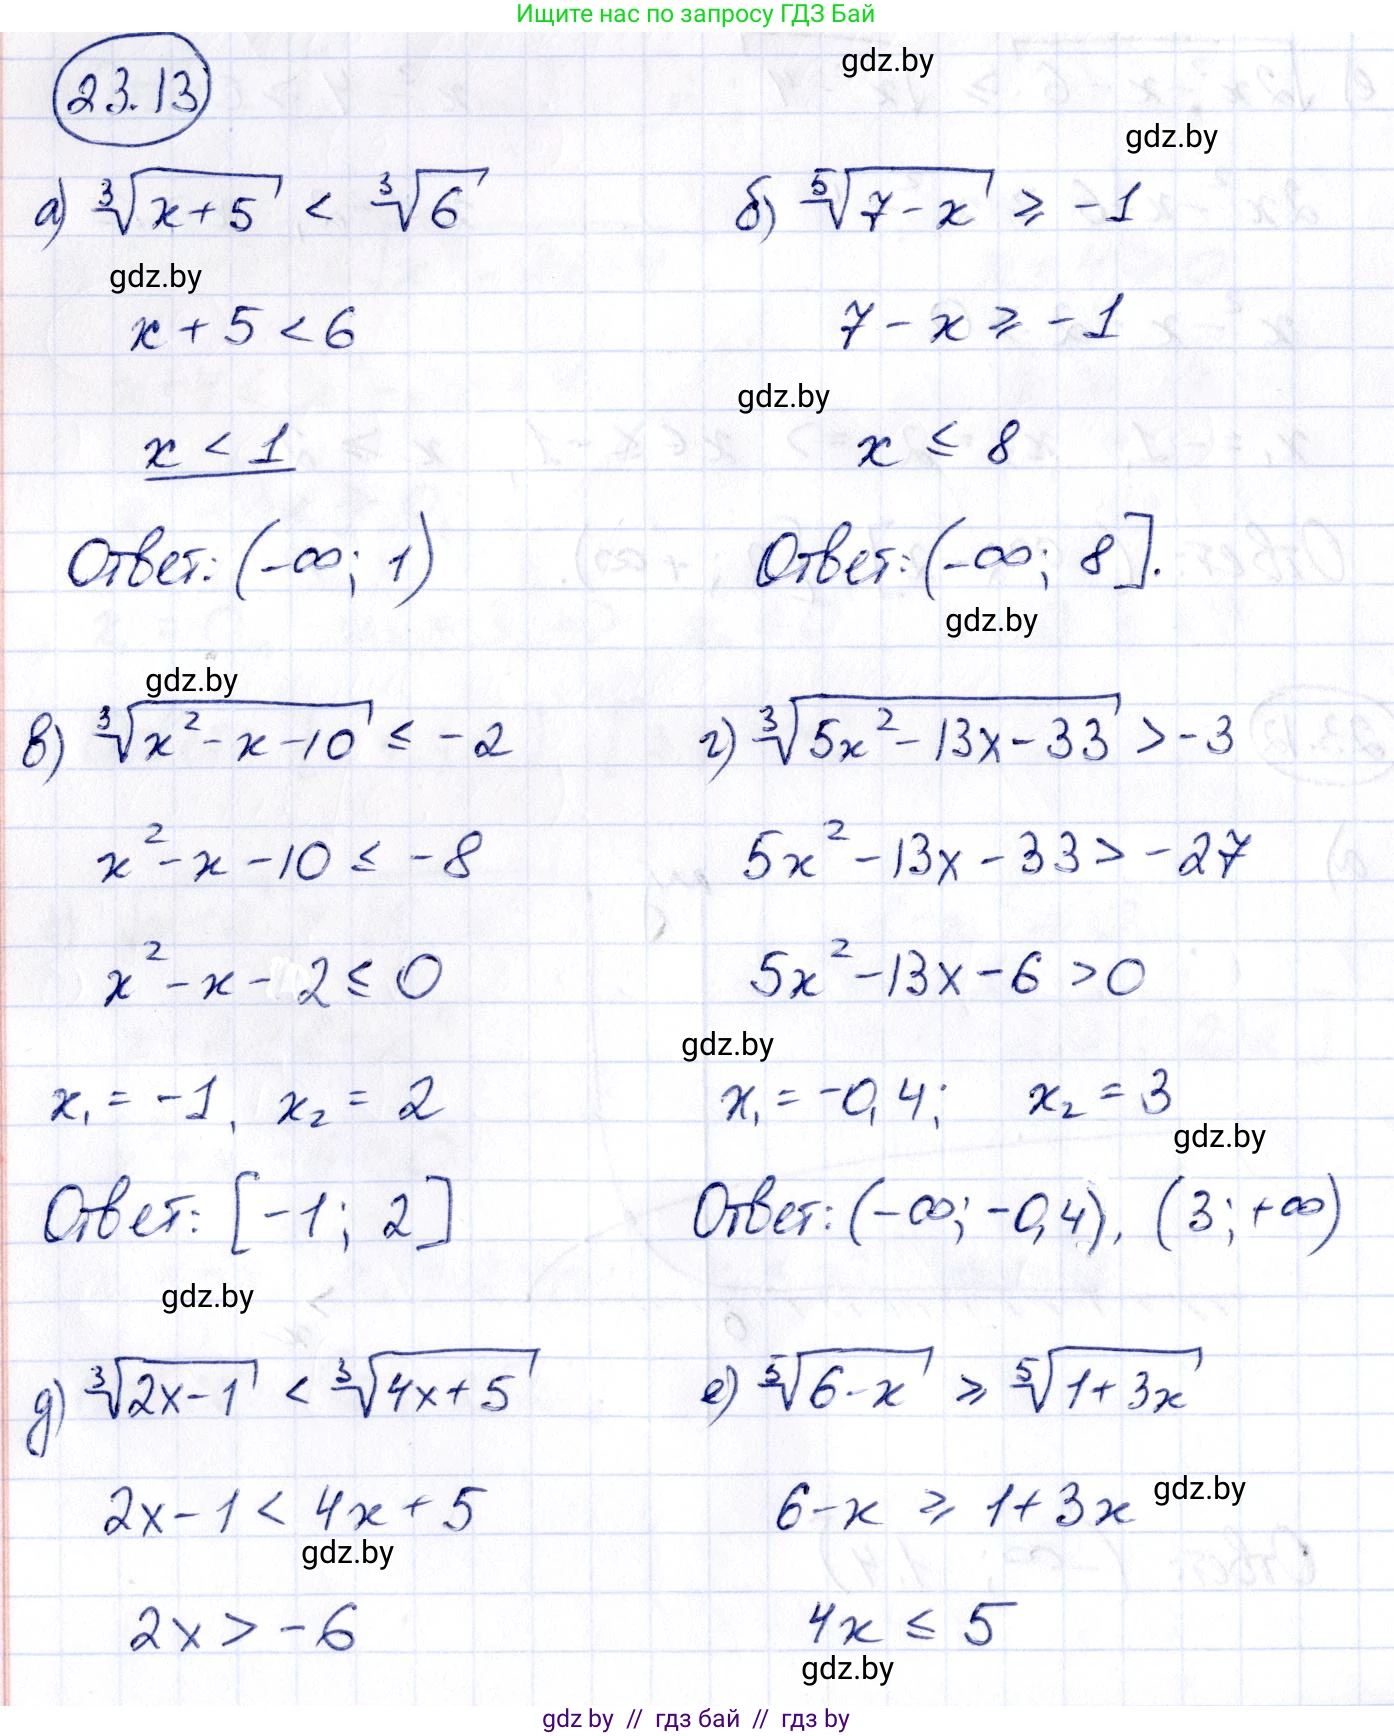 Ищите нас по запросу ГДЗ Бай
23.13
gdz.by
gdz.by
а) ∛(x+5) < ∛6
б) ⁵√(7-x) ≥ -1
gdz.by
x+5<6
7-x ≥ -1
gdz.by
x < 1
x ≤ 8
Ответ: (-∞; 1)
Ответ: (-∞; 8].
gdz.by
gdz.by
в) ∛(x²-x-10) ≤ -2
г) ∛(5x²-13x-33) > -3
x²-x-10 ≤ -8
5x²-13x-33 > -27
x²-x-2 ≤ 0
5x²-13x-6 > 0
gdz.by
x₁ = -1, x₂ = 2
x₁ = -0,4; x₂ = 3
gdz.by
Ответ: [-1; 2]
Ответ: (-∞; -0,4), (3; +∞)
gdz.by
д) ∛(2x-1) < ∛(4x+5)
е) ⁵√(6-x) ≥ ⁵√(1+3x)
2x-1 < 4x+5
6-x ≥ 1+3x
gdz.by
gdz.by
2x > -6
4x ≤ 5
gdz.by
gdz by // гдз бай // гдз by